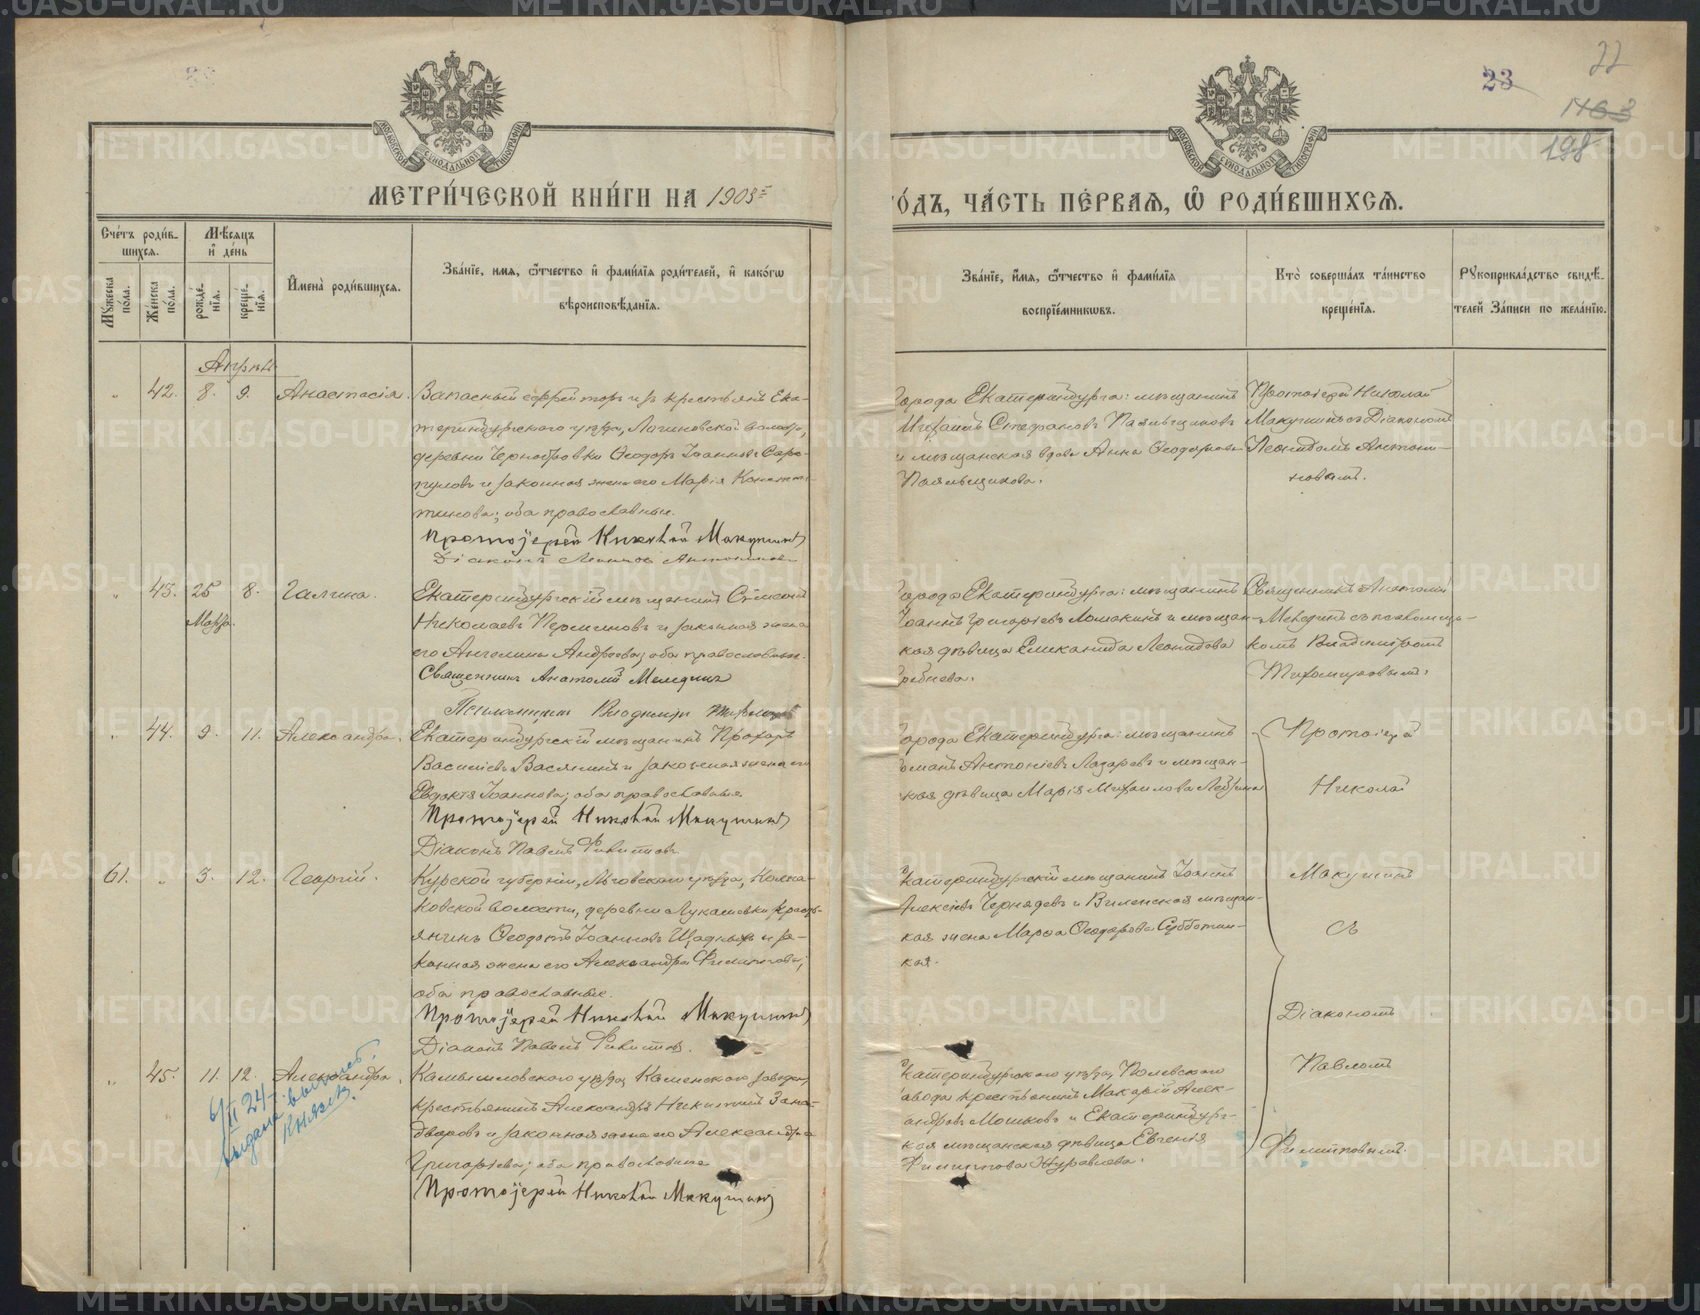 22
23
1463
198
МЕТРИ́ЧЕСКОЙ КНИ́ГИ НА 1903 ГО́ДЪ, ЧА́СТЬ ПЕ́РВАЯ, Ѡ РОДИ́ВШИХСЯ.
Сче́тъ роди́в-
шихся.
Мꙋ́жеска по́ла.
Же́нска по́ла.
Мѣ́сяцъ и де́нь
рожде́нія.
креще́нія.
Имена̀ роди́вшихся.
Зва́ніе, имя, ѻтчество и фами́лія роди́телей, и како́гѡ
вѣроисповѣ́данія.
Зва́ніе, имя, ѻтчество и фами́лія
воспріе́мникѡвъ.
Кто̀ соверша́лъ та́инство
креще́нія.
Рꙋкоприкла́дство свидѣ́-
телей за́писи по жела́нію.
Апрѣль
42. 8. 9. Анастасія.
Запасный ефрейторъ изъ крестьянъ Ека-
теринбургскаго уѣзда,
деревни Ѳеодоръ Іоанновъ Сара-
пуловъ и законная жена его Марія Констан-
тинова; оба православные.
Протоіерей Николай Макушинъ
Діаконъ Леонидъ Антониновъ
города Екатеринбурга: мѣщанинъ
Михаилъ Стефановъ Паяльщиковъ
и мѣщанская вдова Анна Ѳеодорова
Паяльщикова.
Протоіерей Николай
Макушинъ съ Діакономъ
Леонидомъ Антони-
новымъ.
43. 25 8. Галина.
Марта.
Екатеринбургскій мѣщанинъ Симеонъ
Николаевъ Перминовъ и законная жена
его Ангелина Андреева; оба православные.
Священникъ Анатолій Меледин
Псаломщикъ Владиміръ
города Екатеринбурга: мѣщанинъ
Іоаннъ Григорьевъ Ломакинъ и мѣщан-
ская дѣвица Еликанида Леонидова
Священникъ Анатолій
Меледин съ псаломщи-
комъ Владиміромъ
Тихомировымъ.
44. 9. 11. Александра.
Екатеринбургскій мѣщанинъ Прохоръ
Василіевъ Васякинъ и законная жена его
Евдокія Іоаннова; оба православные.
Протоіерей Николай Макушинъ
Діаконъ Павелъ Филипповъ.
города Екатеринбурга: мѣщанинъ
Романъ Антоніевъ Лазаревъ и мѣщан-
ская дѣвица Марія Михаилова
Протоіерей
Николай
Макушинъ
съ
Діакономъ
Павломъ
Филипповымъ.
61. 3. 12. Георгій.
Курской губерніи, Льговскаго уѣзда,
волости, деревни Лукашовки кресть-
янинъ Ѳеодотъ Іоанновъ Щадныхъ и за-
конная жена его Александра Филиппова;
оба православные.
Протоіерей Николай Макушинъ
Діаконъ Павелъ Филипповъ.
Екатеринбургскій мѣщанинъ Іоаннъ
Алексіевъ Чернядевъ и Виленская мѣщан-
ская жена Марѳа Ѳеодорова Субботин-
ская.
45. 11. 12. Александра.
Камышловскаго уѣзда, Каменскаго завода,
крестьянинъ Александръ Никитинъ Зана-
дворовъ и законная жена его Александра
Григорьева; оба православные
Протоіерей Николай Макушинъ
Екатеринбургскаго уѣзда, Полевского
завода крестьянинъ Макарій Алек-
андровъ Мошковъ и Екатеринбург-
ская мѣщанская дѣвица Евгенія
Филиппова Журавлева.
6/II 24 г.
выдана
METRIKI.GASO-URAL.RU